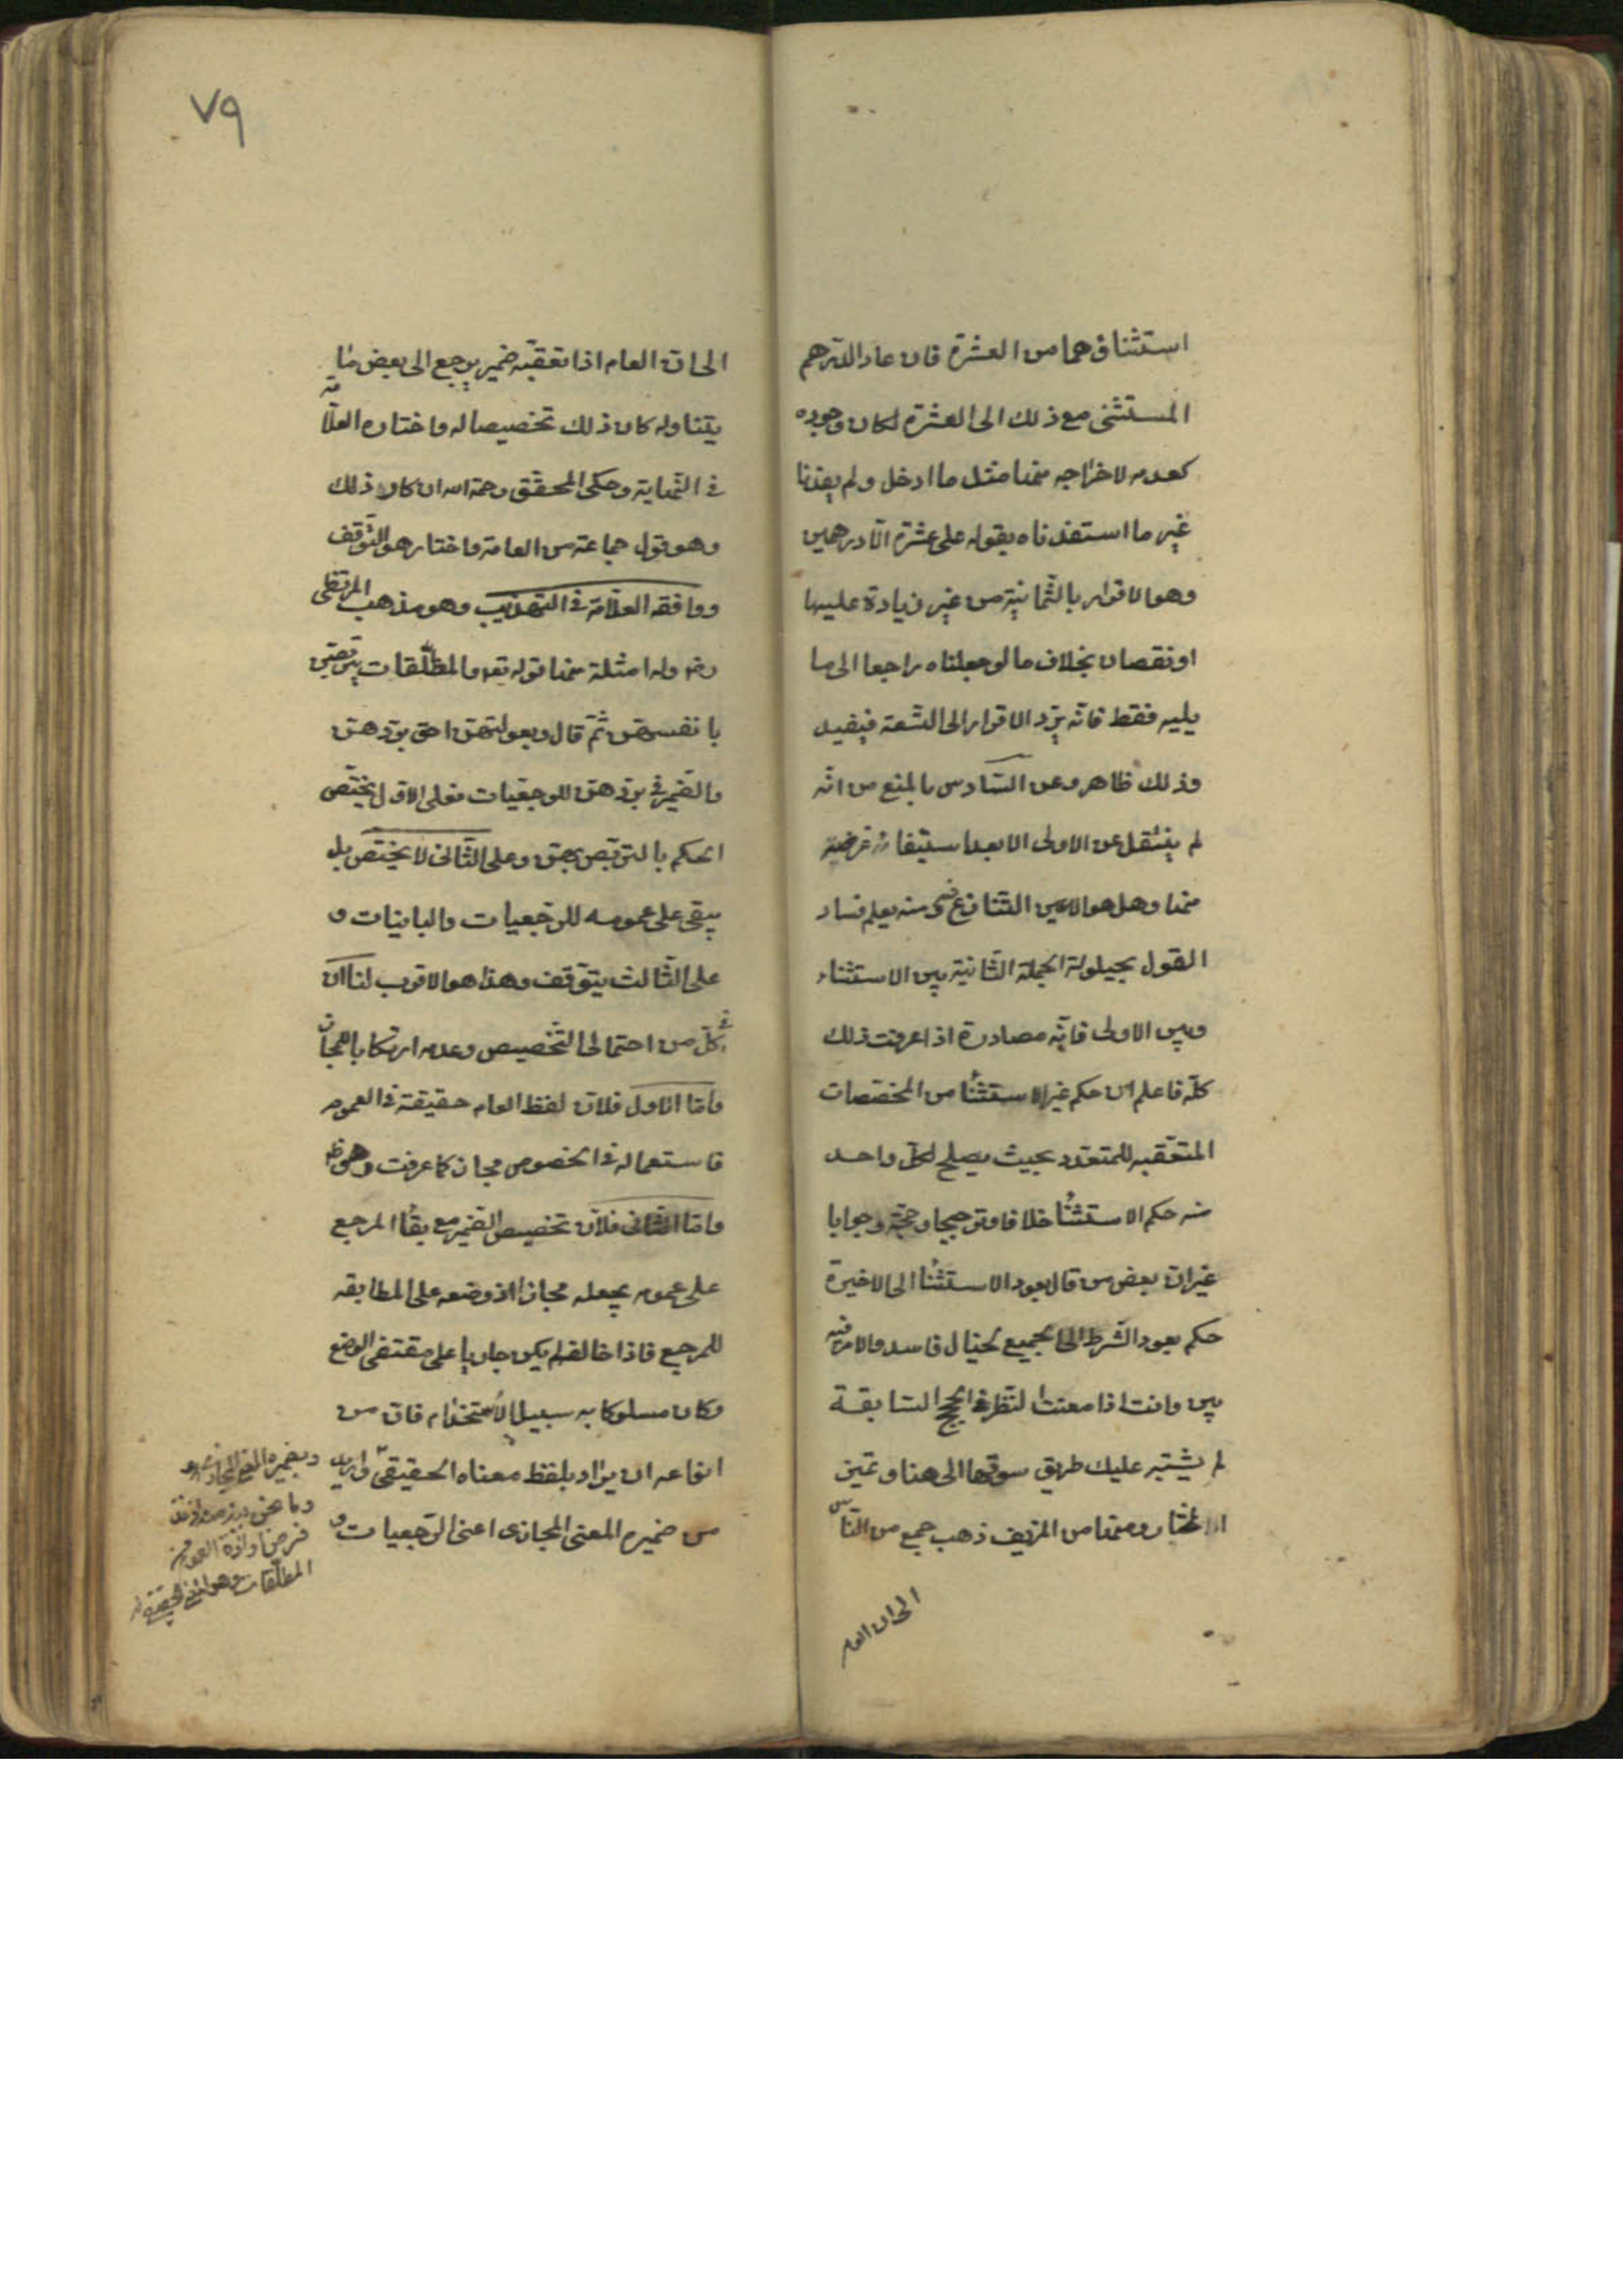 استثناؤهما من العشرة فان عاد الدرهم
المستثنى مع ذلك الى العشرة لكان وجوده
كعدمه لاخراجه منها مثل ما ادخل ولم يفدنا
غير ما استفدناه بقوله على عشرة الّا درهمين
وهو الاقرار بالثّمانية من غير زيادة عليها
او نقصان بخلاف ما لو جعلناه راجعا الى ما
يليه فقط فانّه يردّ الاقرار الى التّسعة فيفيد
وذلك ظاهر وعن السّادس بالمنع من انّه
لم ينتقل عن الاولى الا بعد استيفاء غرضه
منها وهل هو الا عين المتنازع فيه ومنه يعلم فساد
القول بحيلولة الجملة الثّانية بين الاستثناء
وبين الاولى فانّه مصادرة اذا عرفت ذلك
كلّه فاعلم انّ حكم غير الاستثنا من المخصّصات
المتعقّبه للمتعدد بحيث يصلح لكلّ واحد
منه حكم الاستثنا خلافا وترجيحا وحجّة وجوابا
غير انّ بعض من قال بعود الاستثنا الى الاخيرة
حكم بعود الشّرط الى الجميع لخيال فاسد والامر فيه
بين وانت اذا معنت النّظر في الحجج السّابقة
لم يشتبه عليك طريق سوقها الى هنا وتميز
المختار ومنها من المزيف ذهب جمع من النّاس
الى ان العام
٧٩
الى انّ العام اذا تعقبّه ضمير يرجع الى بعض ما
يتناوله كان ذلك تخصيصا له واختاره العلّامة
في النّهاية وحكى المحقّق رحمه الله انكار ذلك
وهو قول جماعة من العامة واختار هو التّوقف
ووافقه العلّامة في التهذيب وهو مذهب المرتضى
رضه وله امثلة منها قوله تعه والمطلّقات يتربّصن
بانفسهنّ ثمّ قال وبعولتهنّ احق بردّهنّ
والضّمير في بردّهنّ للرجعيات فعلى الاوّل يختّص
الحكم بالتربّص بهنّ وعلى الثّانى لا يختّص بل
يبقى على عمومه للرّجعيات والباينات و
على الثّالث يتوّقف وهذا هو الاقرب لنا انّ
في كلّ من احتمالى التّخصيص وعدمه ارتكابا للمجاز
وامّا الاول فلانّ لفظ العام حقيقة في العموم
فاستعماله في الخصوص مجاز كما عرفت وهو ظ
وامّا الثّانى فلانّ تخصيص الضّمير مع بقاا المرجع
على عمومه يجعله مجازا اذ وضعه على المطابقه
للمرجع فاذا خالفه لم يكن جاريا على مقتضى الوضع
وكان مسلوكا به سبيل الاستخدام فانّ من
انواعه ان يراد بلفظ معناه الحقيقىّ واريد
من ضميره المعنى المجازى اعنى الرّجعيات و
وبضميره المعنى المجازى
وما نحن فيه
فرض ارادة العموم من
المطلّقات وهو المعنى الحقيقى له